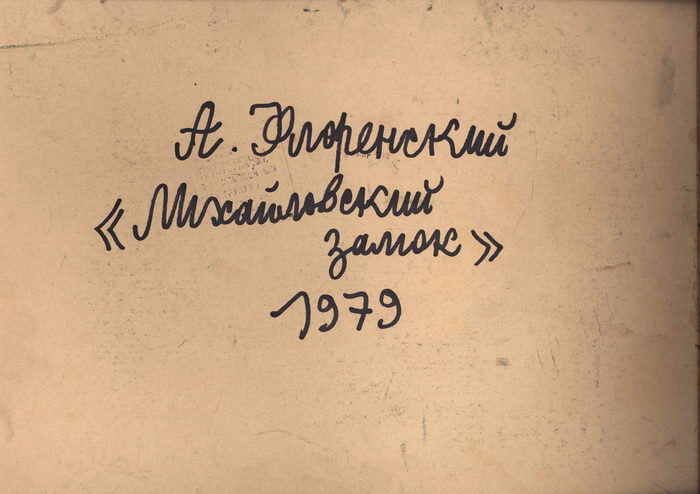 А. Флоренский
«Михайловский
замок»
1979